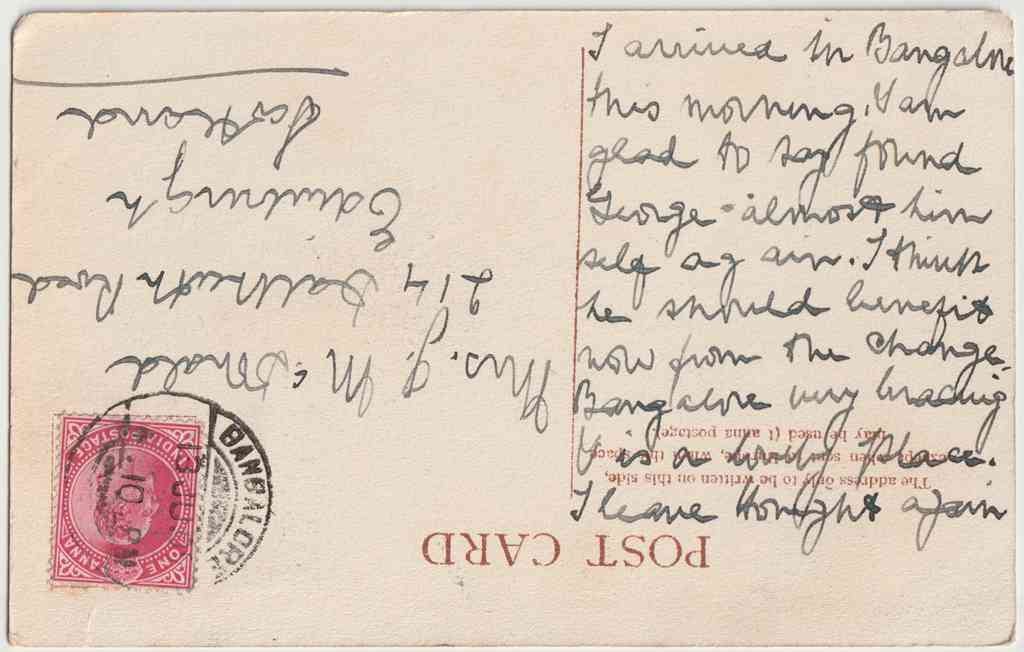 I arrived in Bangalore
this morning. I am
glad to say found
George almost him
self ag ain. I think
he should benefit
now from the change.
Bangalore very bracing
& is a lovely place.
I leave tonight again
POST CARD
The address only to be written on this side,
except when sent inland, when this space
may be used (1 anna postage)
Mrs. J. McDonald
214 Dalkeith Road
Edinburgh
Scotland
BANGALORE
13 JU
10 PM
INDIA POSTAGE
ONE ANNA